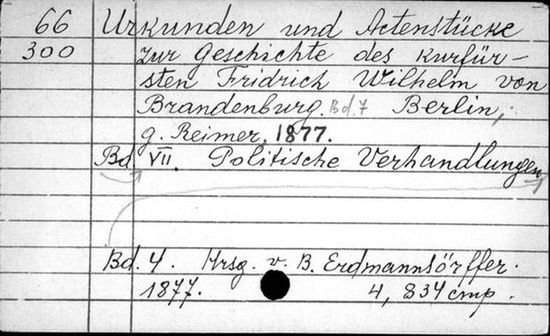 66 Urkunden und Actenstücke
300 zur Geschichte des Kurfür-
sten Fridrich Wilhelm von
Brandenburg. Bd. 7 Berlin,
G. Reimer, 1877.
Bd VII. Politische Verhandlungen
Bd. 4. Hrsg. v. B. Erdmannsörffer.
1877. 4, 834 стр.